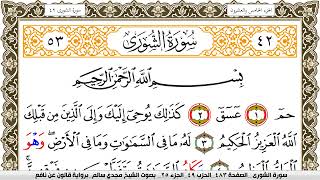 الجزء الخامس والعشرون
سورة الشورى ٤٢
٥٣ سُورَةُ الشُّورَىٰ ٤٢
بِسْمِ اللَّهِ الرَّحْمَٰنِ الرَّحِيمِ
حمٓ ١ عٓسٓقٓ ٢ كَذَٰلِكَ يُوحِىٓ إِلَيْكَ وَإِلَى ٱلَّذِينَ مِن قَبْلِكَ
ٱللَّهُ ٱلْعَزِيزُ ٱلْحَكِيمُ ٣ لَهُۥ مَا فِى ٱلسَّمَٰوَٰتِ وَمَا فِى ٱلْأَرْضِ وَهْوَ
سورة الشورى . الصفحة ٤٨٣ . الحزب ٤٩ . الجزء ٢٥ . بصوت الشيخ مجدي سالم . برواية قالون عن نافع